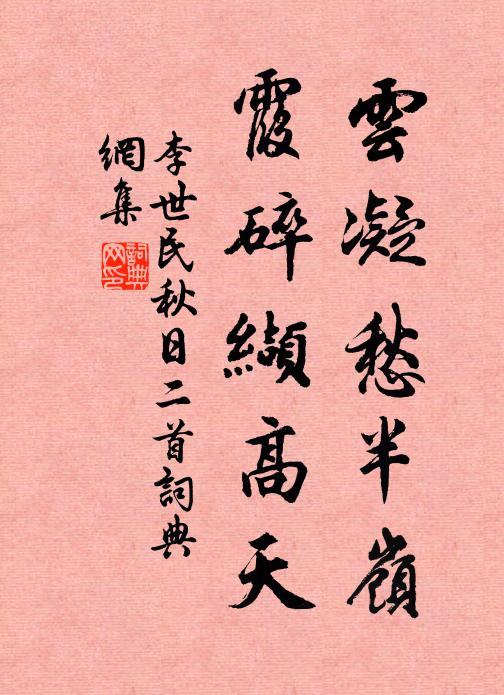 雲凝愁半嶺
霞碎纈高天
李世民秋日二首詞典
網集
詞典
网印